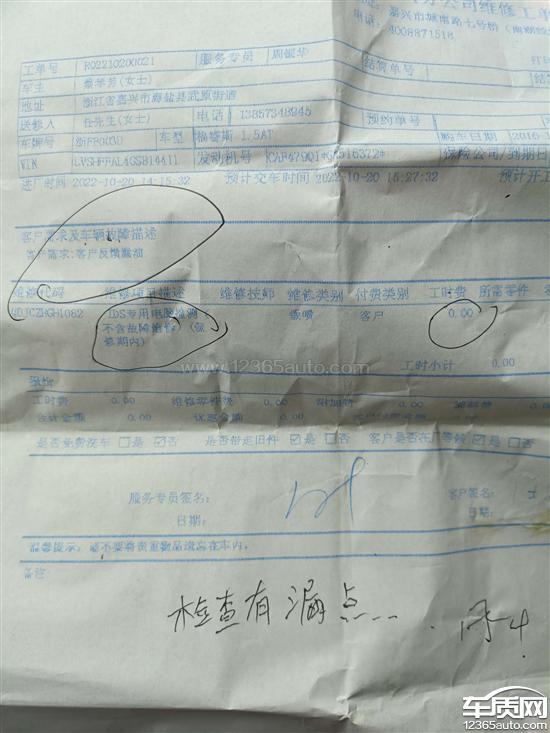 分公司维修工单
地址：嘉兴市城南路七号桥（南湖
电话：4008871518
工单号 RO2210200021 服务专员 周银华 结算单号
车主 (女士)
地址 浙江省嘉兴市海盐县武原街道
送修人 任先生(女士) 电话 13857348945 预约单号
车牌号 车型 福睿斯 1.5AT 购车日期 2016-
VIN 发动机号 保险公司/到期日
进厂时间 2022-10-20 14:15:32 预计交车时间 2022-10-20 15:27:32 预计开工
客户需求及车辆故障描述
客户需求:客户反馈漏油
维修代码 维修项目描述 维修技师 维修类别 付费类别 工时费 所需零件
IDS专用电脑检测 客户 0.00
不含故障维修 (保
修期内)
www.12365auto.com
工时小计 0.00
报价
工时费 0.00 维修零件费 0.00 附加费 0.00
合计金额 0.00 优惠金额 0.00
是否免费洗车 是 否 是否带走旧件 是 否 客户是否在厂等候 是 否
服务专员签名： 客户签名：
日期： 日期：
温馨提示：请不要将贵重物品遗忘在车内。
备注
检查有漏点...
车质网
12365auto.com